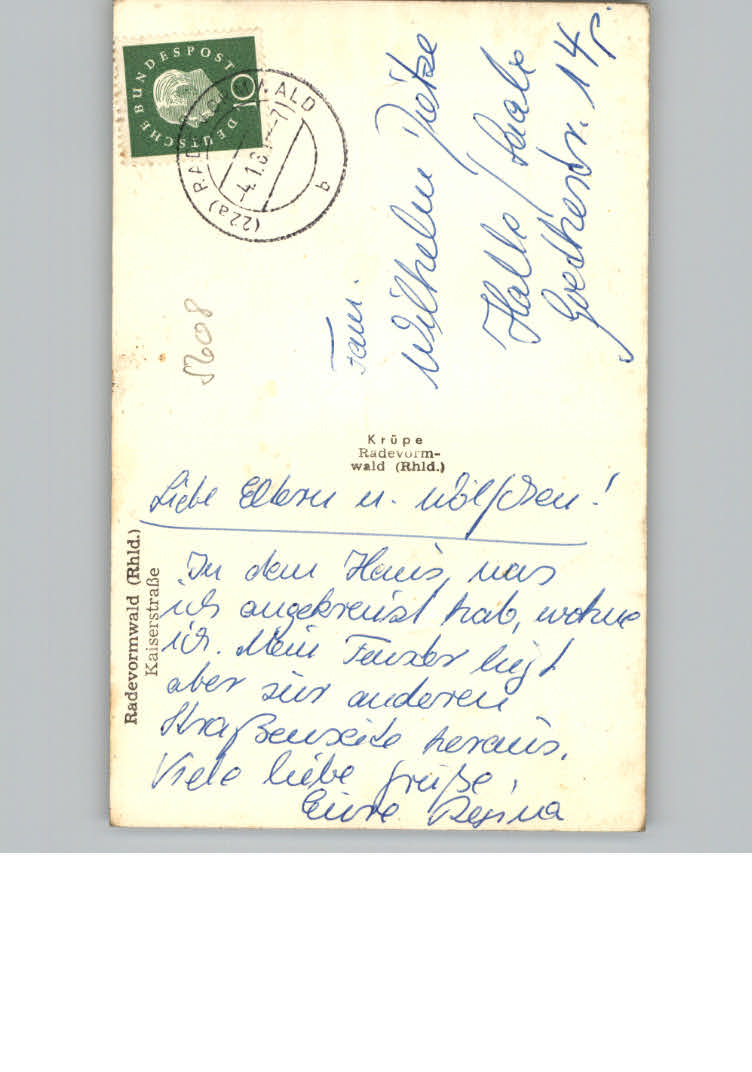 DEUTSCHE BUNDESPOST
10
(22a) RADEVORMWALD
-4.1.6
b
5608
Fam.
Wilhelm
Halle / Saale
Goethestr. 14
Krüpe
Radevorm-
wald (Rhld.)
Radevormwald (Rhld.)
Kaiserstraße
Liebe Eltern u. Wölfchen!
In dem Haus, was
ich angekreuzt hab, wohne
ich. Mein Fenster liegt
aber zur anderen
Straßenseite heraus.
Viele liebe Grüße,
Eure Regina